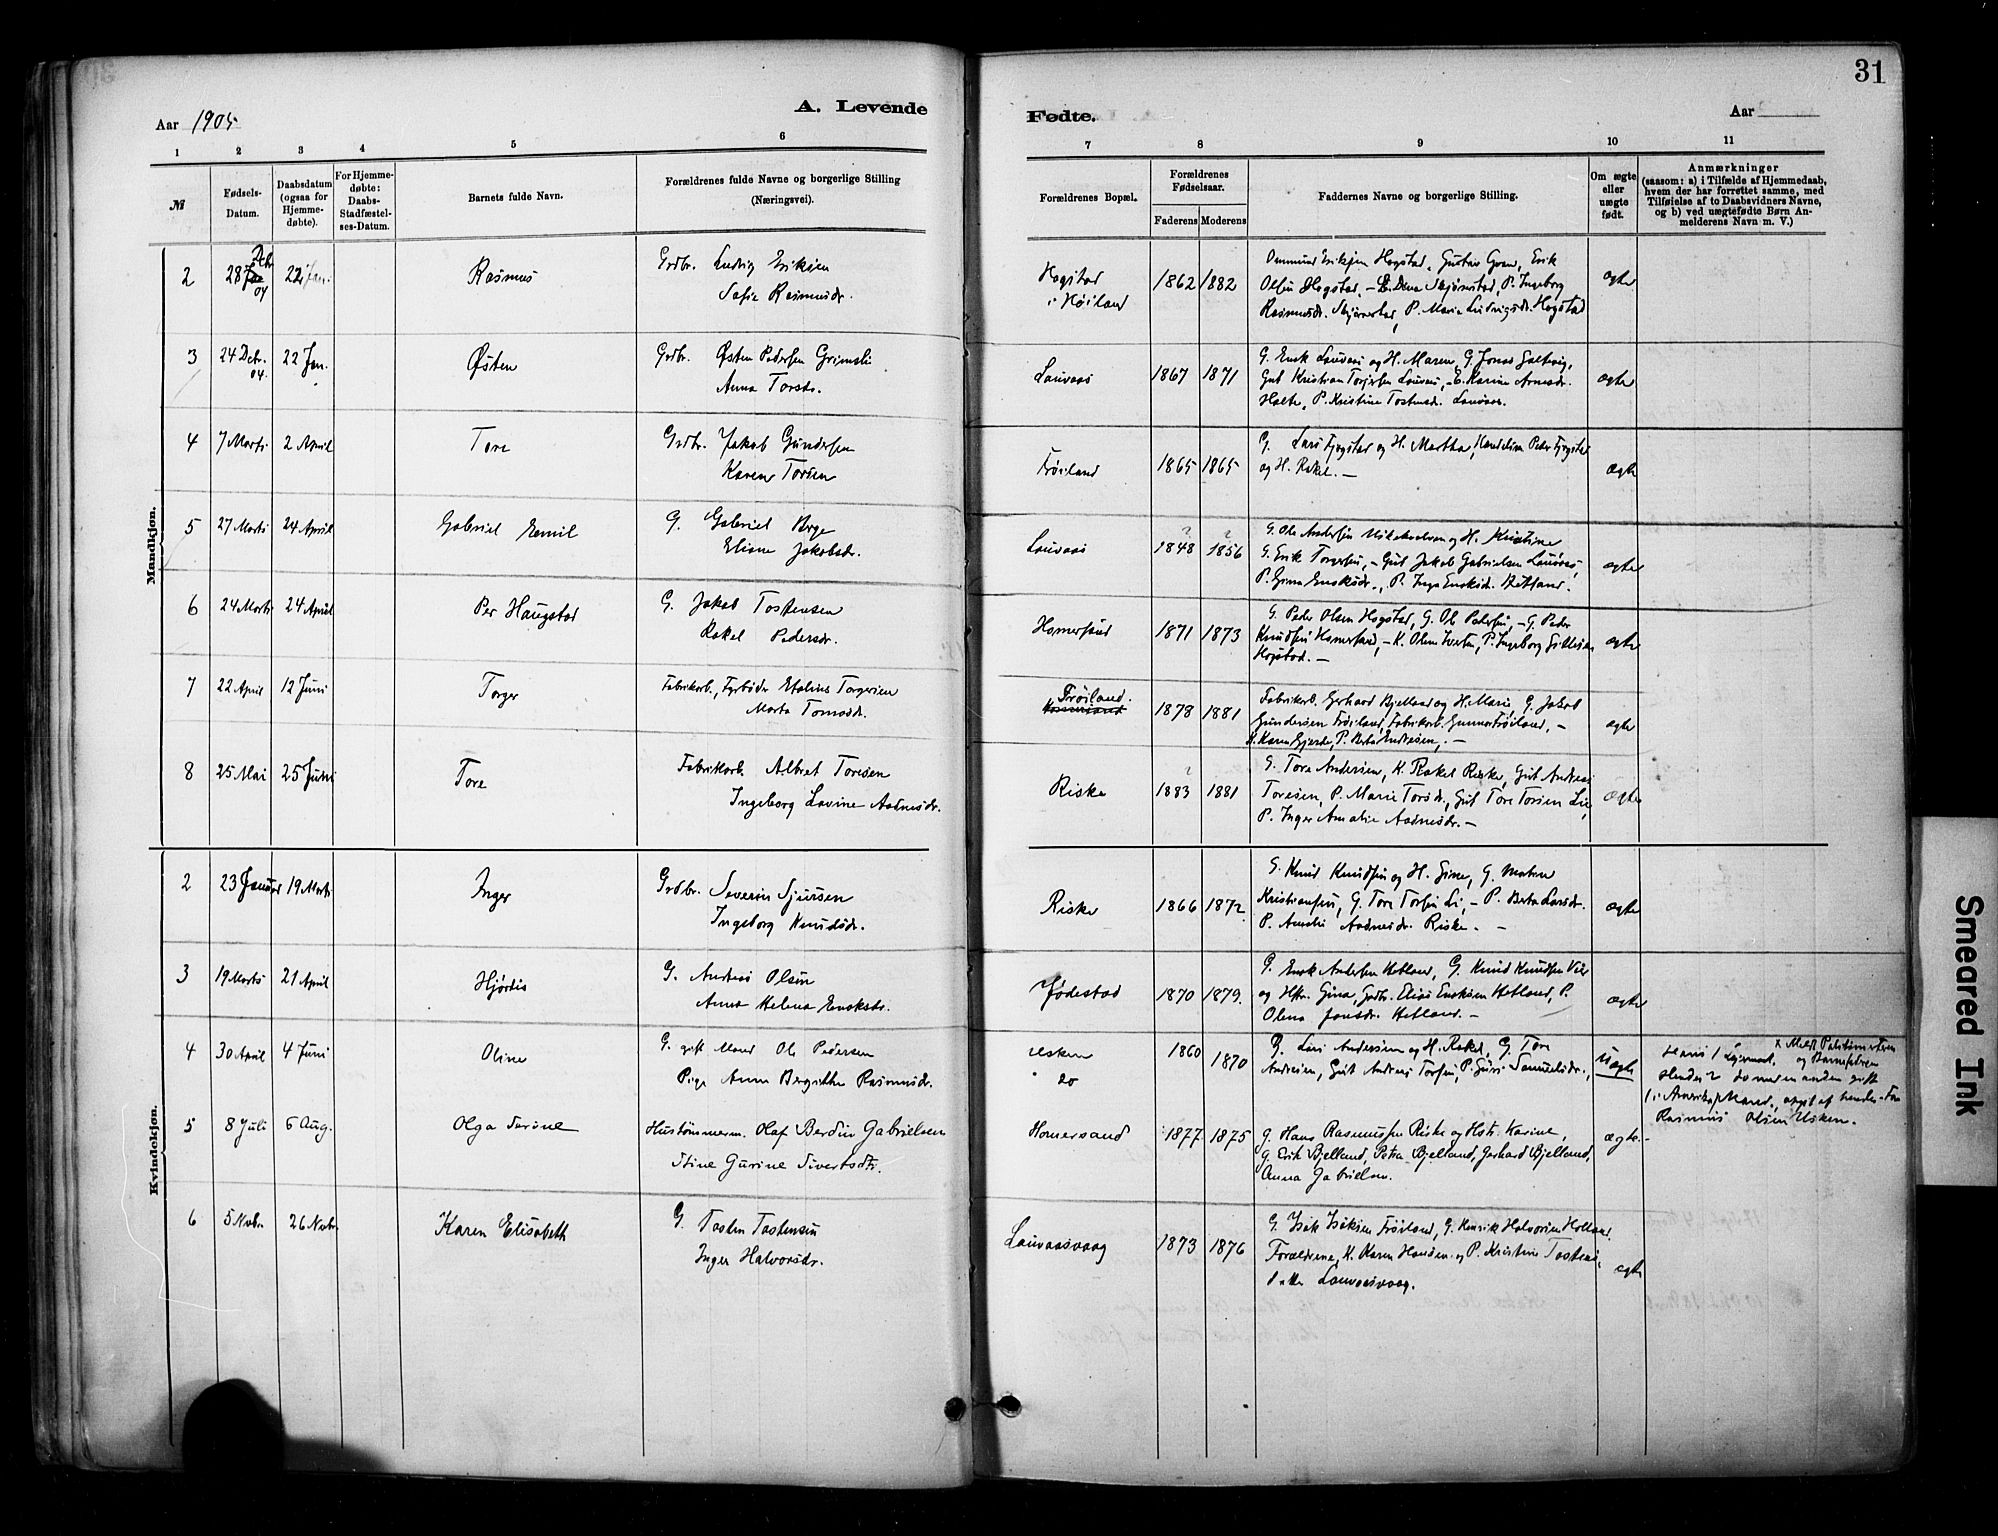 31
Aar 1905
A. Levende
Fødte.
Aar
1 2 3 4 5 6 7 8 9 10 11
№
Fødsels-
Datum.
Daabsdatum
(ogsaa for
Hjemme-
døbte).
For Hjemme-
døbte:
Daabs-
Stadfæstel-
ses-Datum.
Barnets fulde Navn.
Forældrenes fulde Navne og borgerlige Stilling
(Næringsvei).
Forældrenes Bopæl.
Forældrenes
Fødselsaar.
Faderens Moderens
Faddernes Navne og borgerlige Stilling.
Om ægte
eller
uægte
født.
Anmærkninger
(saasom: a) i Tilfælde af Hjemmedaab,
hvem der har forrettet samme, med
Tilføielse af to Daabsvidners Navne,
og b) ved uægtefødte Børn An-
melderens Navn m. V.)
Mandkjøn.
2 28 Dcbr 04 22 Jan. Rasmus
Grdbr. Ludvig Eriksen
Sofie Rasmusdr.
Hogstad
i Høiland
1862 1882
Ommund Eriksen Hogstad, Gustav Gran, Erik
Olsen Hogstad, Dina Skjørestad, P. Ingeborg
Rasmusdr. Skjørestad, P. Marie Ludvigsdr. Hogstad
ægte
3 24 Dcbr. 04. 22 Jan. Østen
Grdbr. Østen Pedersen Grimsli
Anna Torsdr.
Lauvaas
1867 1871
G. Enok Lauvaas og H. Maren, G. Jonas Saltevig,
Gut Kristian Torgersen Lauvaas, K. Karine Arnesdr.
Holte, P. Kristine Tostensdr. Lauvaas.
ægte
4 7 Marts 2 April Tore
Grdbr. Jakob Gundersen
Karen Torsen
Frøiland
1865 1865
G. Lars Fjogstad og H. Martha, Handelsm. Peder Fjogstad
og H. Rakel. —
ægte
5 27 Marts 24 April Gabriel Emil
G. Gabriel Berge
Eliane Jakobsdr.
Lauvaas
1848 ? 1856 ?
G. Ole Andersen og H. Kristine
G. Erik Torgersen, — Gut Jakob Gabrielsen Lauvaas,
P. Gina Enoksdr., P. Inga Enoksdr. Hetland.
ægte
6 24 Marts 24 April Per Haugstad
G. Jakob Tostensen
Rakel Pedersdr.
Homersand
1871 1873
G. Peder Olsen Hogstad, G. Ol. Pedersen, — G. Peder
Knudsen Homersand, — K. Olene, P. Ingeborg
Hogstad. —
ægte
7 22 April 12 Juni Torger
Fabrikarb., Fyrbøder Torgersen
Marta Tomasdr.
Frøiland.
Homersand
1878 1881
Fabrikarb. Gerhard Bjelland og H. Marie, G. Jakob
Gundersen Frøiland, Fabrikarb. Gunnar Frøiland, —
K. Karen Gjerde, P. Berta Endresen, —
ægte
8 25 Mai 25 Juni Tore
Fabrikarb. Albret Toresen
Ingeborg Lovine Aadnesdr.
Riska
1883 ? 1881
G. Tore Andersen, K. Rakel Riske, Gut Andreas
Toresen, P. Marie Torsdr., Gut Tore Torsen Li,
P. Inger Amalie Aadnesdr. —
ægte
Kvindekjøn.
2 23 Januar 19 Marts Inger
Grdbr. Severin Sjursen
Ingeborg Knudsdr.
Riska
1866 1872.
G. Knud Knudsen og H. Gine, G. Maten
Kristiansen, G. Tore Torsen Li, — P. Berta Larsdr.
P. Amalie Aadnesdr. Riske. —
ægte
3 19 Marts 21 April Hjørdis
G. Andreas Olsen
Anna Helena Enoksdr.
Jødestad
1870 1879.
G. Enok Andersen Hetland, G. Knud Knudsen
og Hstr. Gina, Grdbr. Elias Enoksen Hetland, P.
Olena Jonsdr. Hetland. —
ægte
4 30 April 4 Juni Oline
G. gift Mand Ole Pedersen
Pige Anna Bergitta Rasmusdr.
Usken
do
1860 1870
G. Lars Andersen og H. Rakel, G. Tore
Andersen, Gut Andreas Torsen, P. Guri Samuelsdr.,
uægte
Hans 1 Leiermaal. x Meldt Politimesteren
og Barnefaderen
Hendes 2 do med en anden gift
(i Amerika) Mand, opgit af hendes Far
Rasmus Olsen Usken.
5 8 Juli 6 Aug. Olga Serine
Hustømmerm. Olaf Berdin Gabrielsen
Stine Gurine Sivertsdtr.
Homersand
1877 1875
G. Hans Rasmussen Riske og Hstr. Karine,
G. Erik Bjelland, Petra Bjelland, Gerhard Bjelland,
Anna Gabrielsen.
ægte.
6 5 Novbr 26 Novbr Karen Elisabeth
G. Tosten Tostensen
Inger Halvorsdr.
Lauvaasvaag
1873 1876
G. Isak Isaksen Frøiland, G. Henrik Halvorsen Hetland,
Forældrene, K. Karen Hansen og P. Kristine Tostens-
datter Lauvaasvaag.
ægte
Smeared Ink